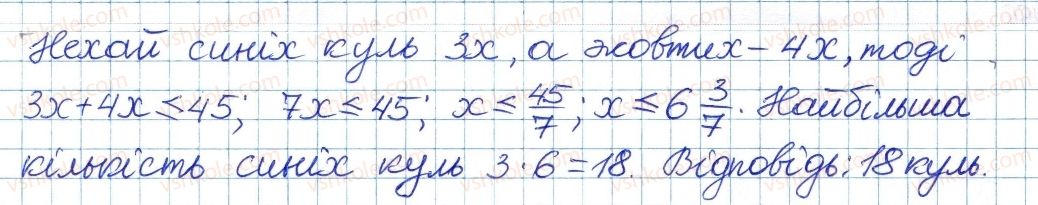 Нехай синіх куль 3x, а жовтих – 4x, тоді
3x+4x ≤ 45; 7x ≤ 45; x ≤ 45/7; x ≤ 6 3/7. Найбільша
кількість синіх куль 3·6=18. Відповідь: 18 куль.